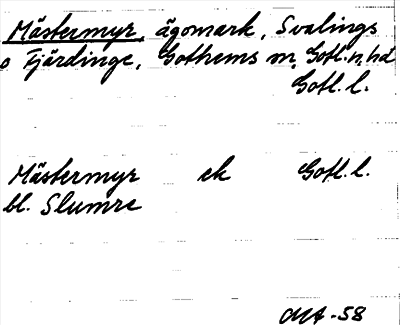 Mästermyr, ägomark, Svalings
o Fjärdinge, Gothems sn, Gotl. n. hd
Gotl. l.
Mästermyr ek Gotl. l.
bl. Slumre
-58